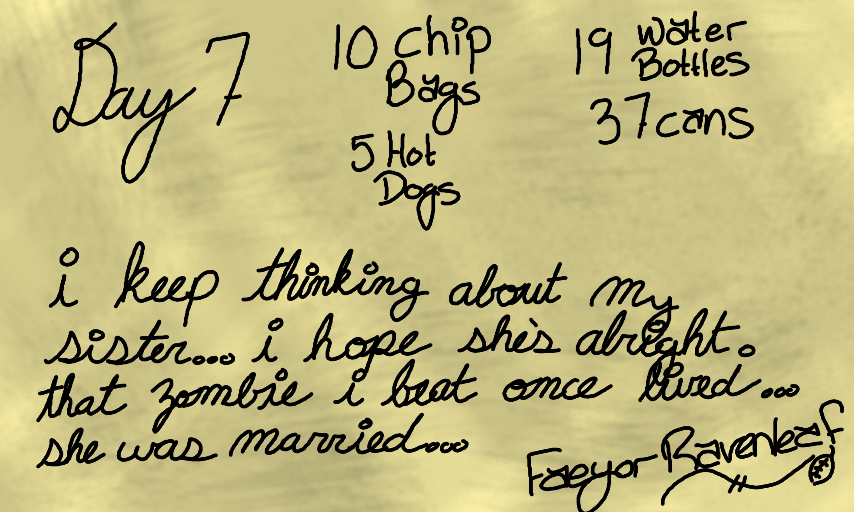 Day 7
10 Chip
Bags
5 Hot
Dogs
19 Water
Bottles
37 cans
i keep thinking about my
sister... i hope she's alright.
that zombie i beat once lived...
she was married...
Faeyor Ravenleaf